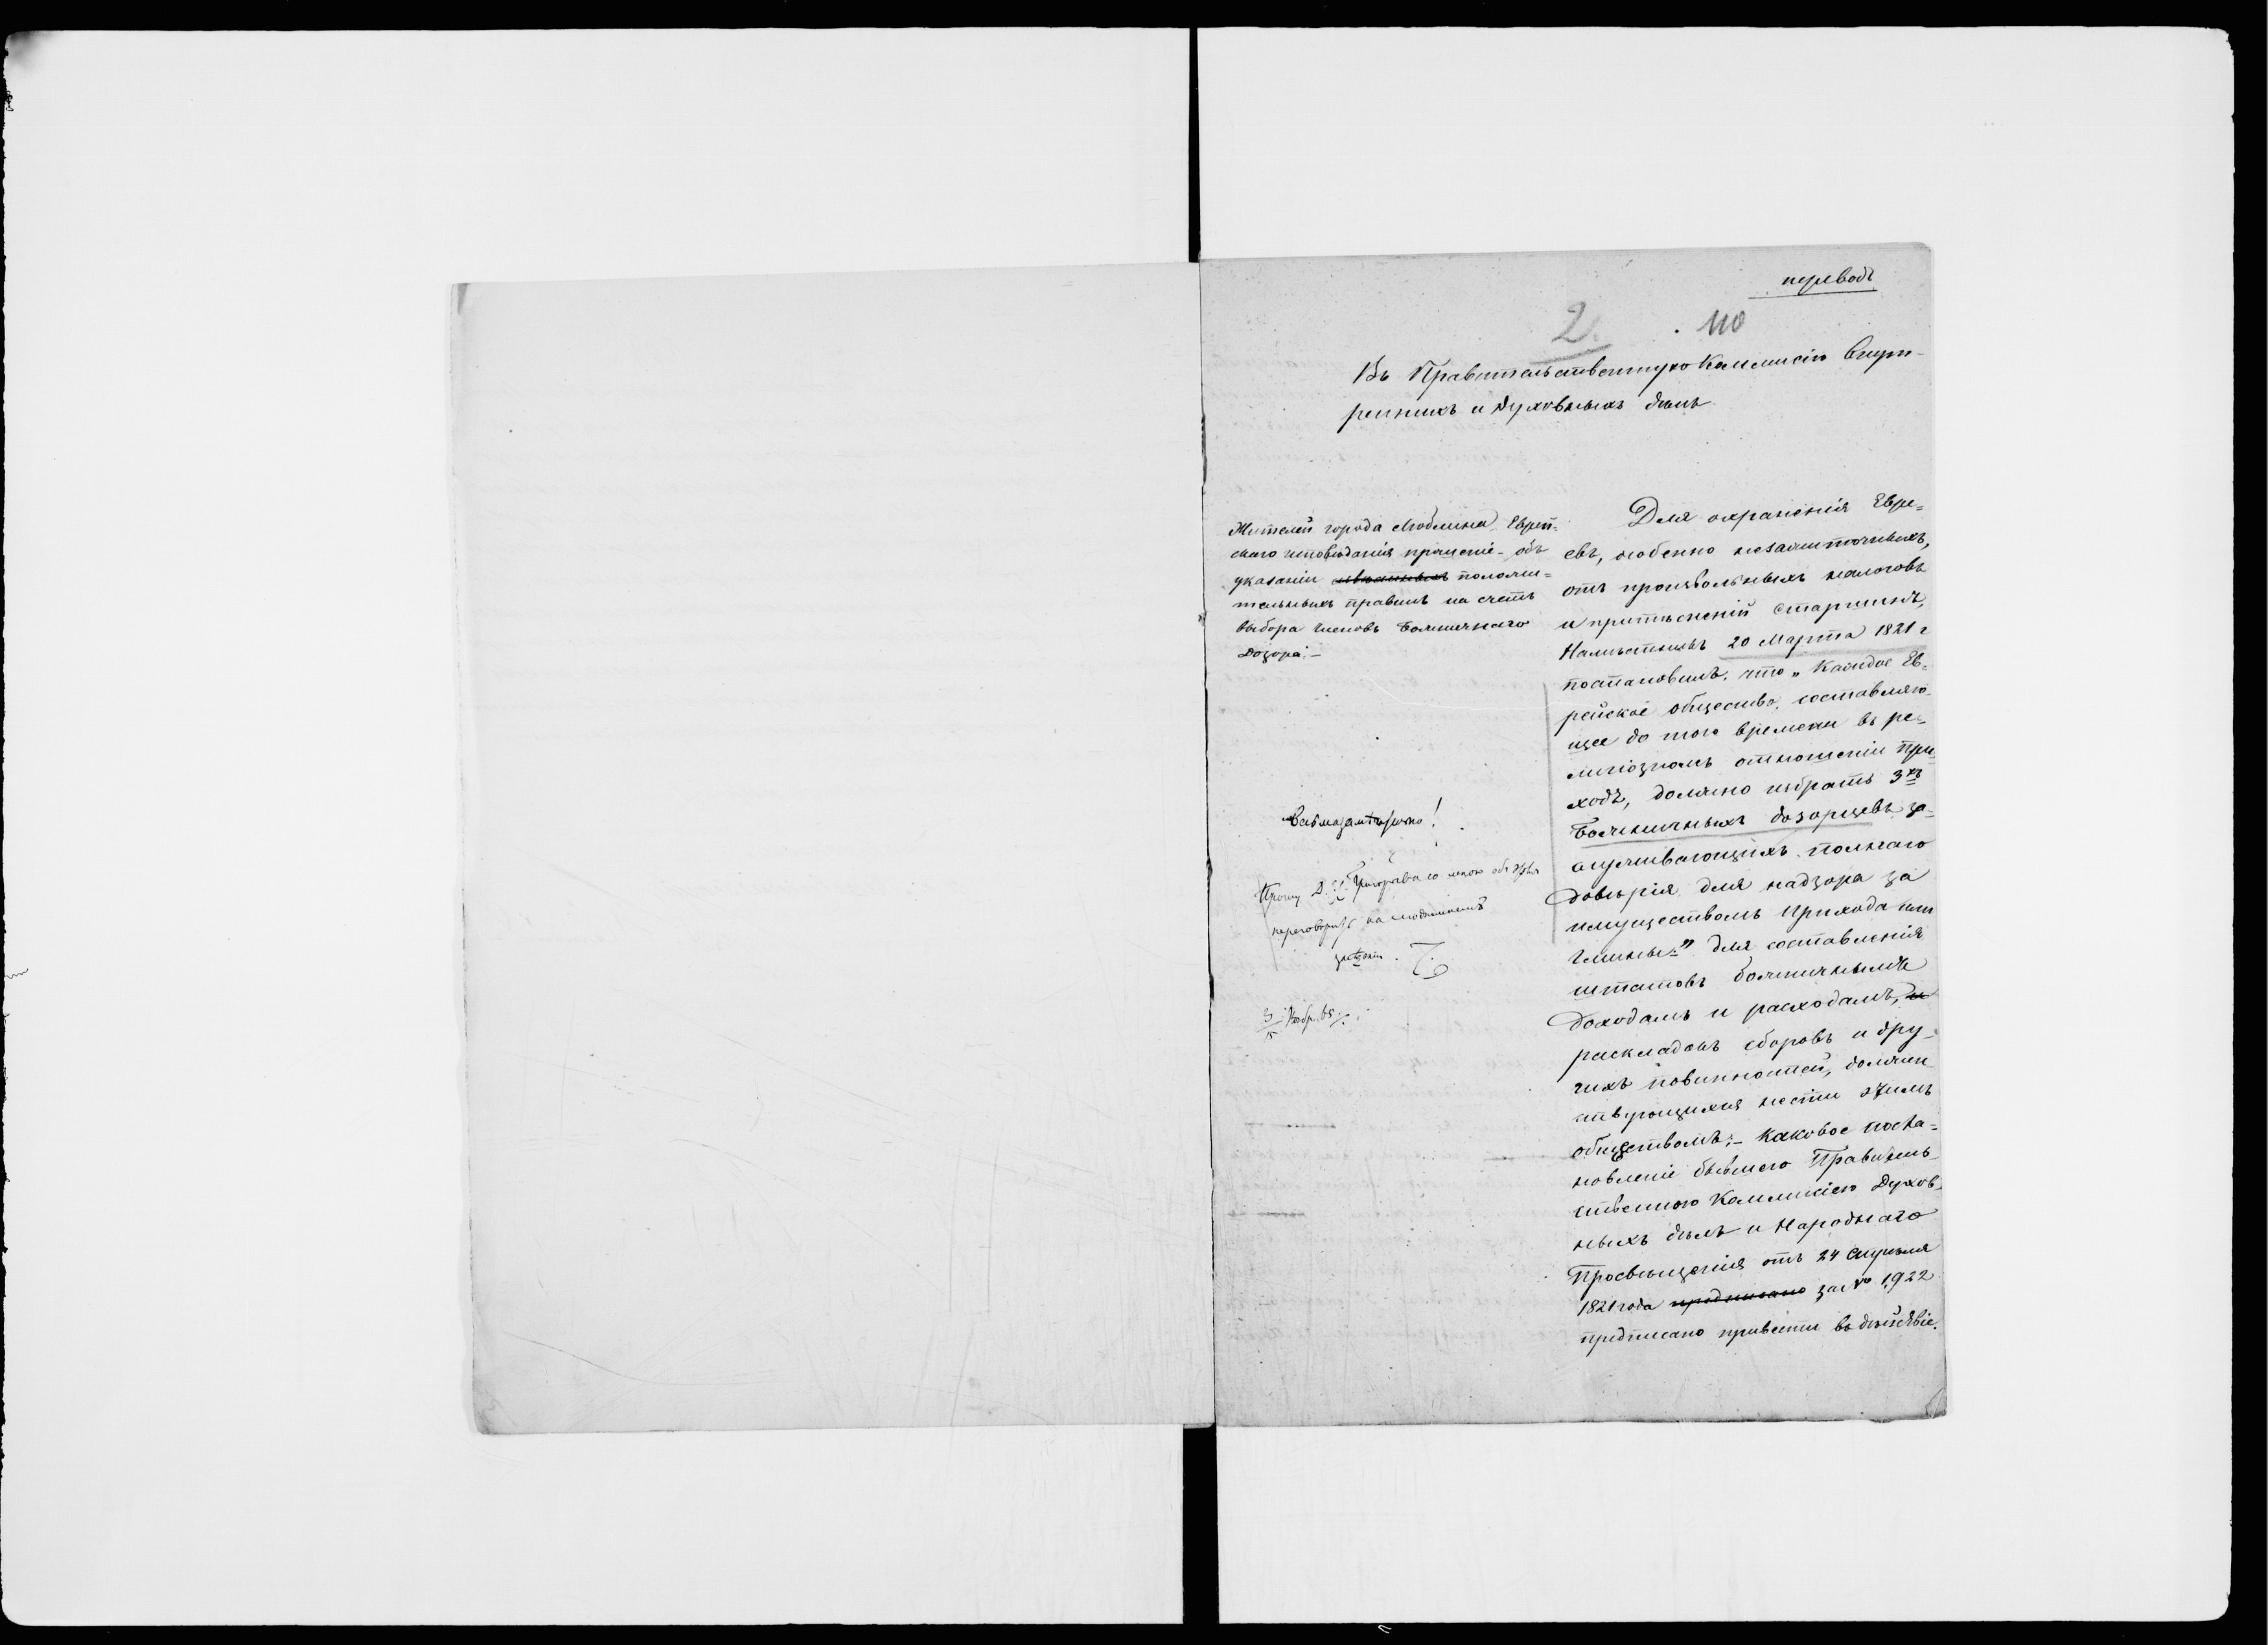 переводъ
2. 110
Въ Правительственную Коммисію Внут-
реннихъ и Духовныхъ дѣлъ
Жителей города Люблина Еврей-
скаго исповѣданія прошеніе объ
указаніи положи-
тельныхъ правилъ на счетъ
выбора членовъ Божничнаго
Дозора.-
Весьма замѣчательно!
Прошу Д. С. С. со мною объ этомъ
переговорить
3/15 Ноябр. 65.
Для охраненія Евре-
евъ, особенно незажиточныхъ,
отъ произвольныхъ налоговъ
и притѣсненій Старшинъ,
Намѣстникъ 20 Марта 1821 г
постановилъ, что „Каждое Ев-
рейское общество, составляю-
щее до того времени въ ре-
лигіозномъ отношеніи При-
ходъ, должно избрать 3хъ
Божничныхъ дозорцевъ за-
служивающихъ полнаго
довѣрія для надзора за
имуществомъ Прихода или
гмины." для составленія
штатовъ божничнымъ
доходамъ и расходамъ, и
раскладокъ сборовъ и дру-
гихъ повинностей, должен-
ствующихъ нести этимъ
обществомъ;- каковое поста-
новленіе бывшею Правитель-
ственною Коммисіею Духов-
ныхъ дѣлъ и Народнаго
Просвѣщенія отъ 24 Апрѣля
1821 года предписано за № 1,922
предписано привести въ дѣйствіе.